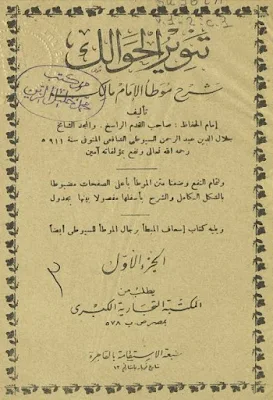 تنوير الحوالك
شرح موطأ الإمام مالك
تأليف
إمام الحفاظ: صاحب القدم الراسخ، والمجد الشامخ
جلال الدين عبد الرحمن السيوطي الشافعي المتوفى سنة ٩١١ ه
رحمه الله تعالى ونفع بمؤلفاته آمين
ولتمام النفع وضعنا متن الموطأ بأعلى الصفحات مضبوطا
بالشكل الكامل والشرح بأسفلها مفصولا بينها بجدول
ويليه كتاب إسعاف المبطأ برجال الموطأ للسيوطي أيضاً
الجزء الأول
يطلب من
المكتبة التجارية الكبرى
بمصر ص ب ٥٧٨
مطبعة الاستقامة بالقاهرة